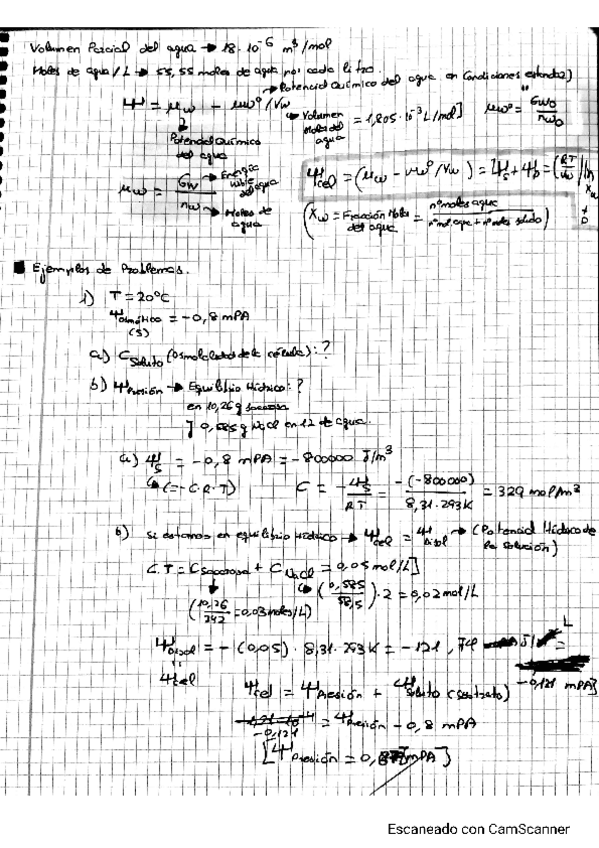 Volumen Parcial del agua → 18·10⁻⁶ m³/mol
Moles de agua/L → 55,55 moles de agua por cada litro.
→ Potencial Químico del agua en Condiciones estándar)
Ψ = μw - μw°/Vw
→ Volumen Molar del agua = 1,805·10⁻³ L/mol]
μw° = Gw₀/nw₀
Potencial Químico del agua
μw = Gw/nw
→ Energía libre del agua
→ Moles de agua
Ψcel = (μw - μw°/Vw) = Ψs + Ψp = (RT/Vw) ln Xw + P
(Xw = Fracción Molar del agua = nº moles agua / nº mol agua + nº moles soluto)
Ejemplos de Problemas.
1) T = 20°C
Ψosmótico = -0,8 mPA
(s)
a) Csoluto (osmolalidad de la célula): ?
b) Ψpresión → Equilibrio Hídrico: ?
en 10,26 g sacarosa
y 0,585 g NaCl en 1L de agua.
a) Ψs = -0,8 mPA = -800000 J/m³
(= -C·R·T)
C = -Ψs/RT = -(-800000)/8,31·293K = 329 mol/m³
b) si estamos en equilibrio Hídrico → Ψcel = Ψdisol → (Potencial Hídrico de la solución)
C.T = Csacarosa + CNaCl = 0,05 mol/L]
(10,26/342 = 0,03 moles/L)
(0,585/58,5)·2 = 0,02 mol/L
Ψdisol = -(0,05)·8,31·293K = -121,74
Ψcel
-0,121 mPA]
Ψcel = Ψpresión + Ψsoluto
-0,121 = Ψpresión - 0,8 mPA
[Ψpresión = 0,
mPA]
Escaneado con CamScanner